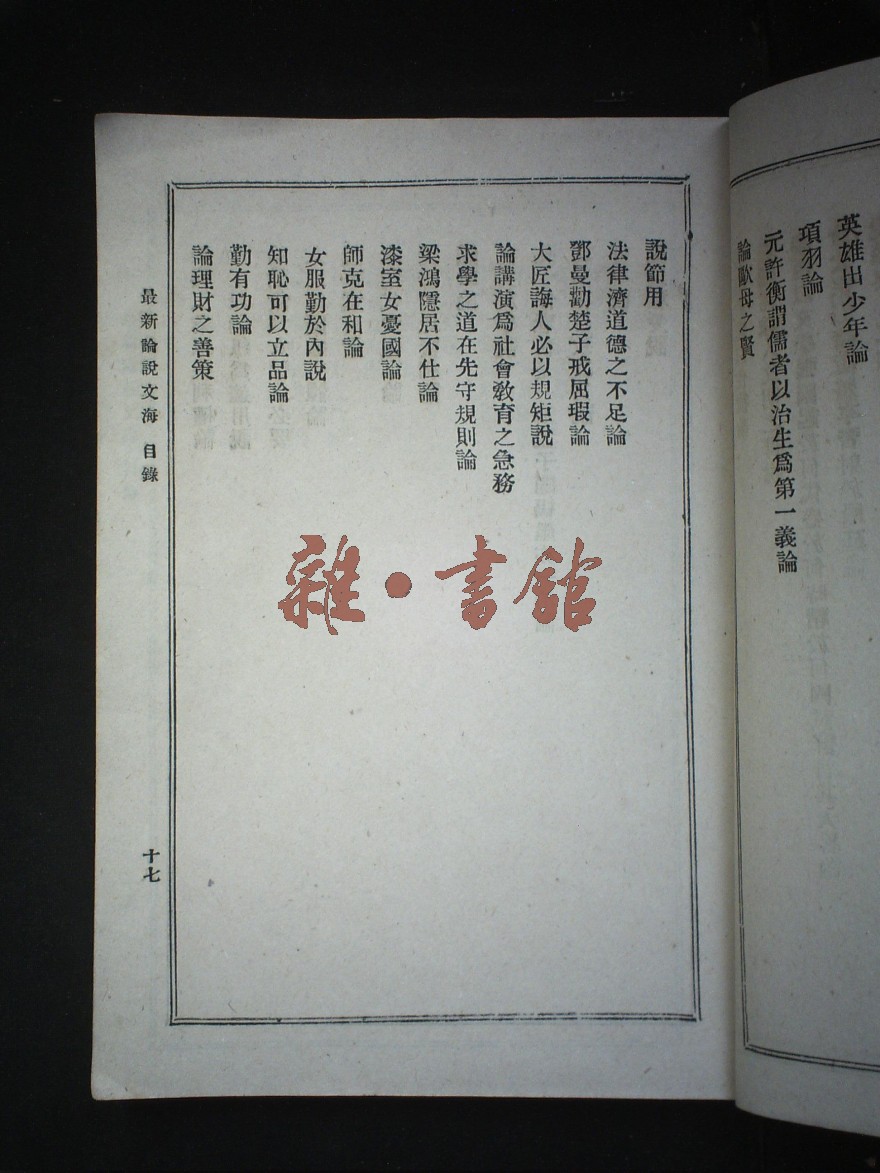 英雄出少年論
項羽論
元許衡謂儒者以治生爲第一義論
論歐母之賢
說節用
法律濟道德之不足論
鄧曼勸楚子戒屈瑕論
大匠誨人必以規矩說
論講演爲社會敎育之急務
求學之道在先守規則論
梁鴻隱居不仕論
漆室女憂國論
師克在和論
女服勤於內說
知恥可以立品論
勤有功論
論理財之善策
最新論說文海 目錄
十七
雜·書館